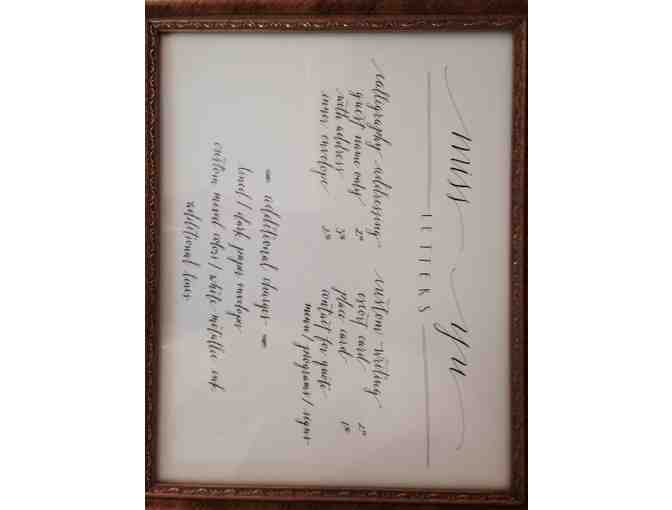 miss yu
LETTERS
calligraphy addressing
guest name only 2
with address 3
inner envelope 2
custom writing
escort card 2
place card 1
contact for quote
menu/programs/signs
additional charges
lined/dark paper envelope
custom mixed color/white metallic ink
additional lines